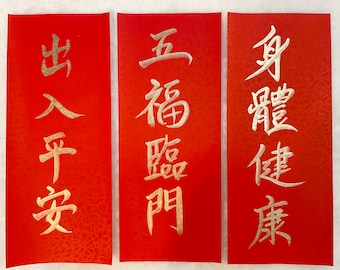 出入平安
五福臨門
身體健康